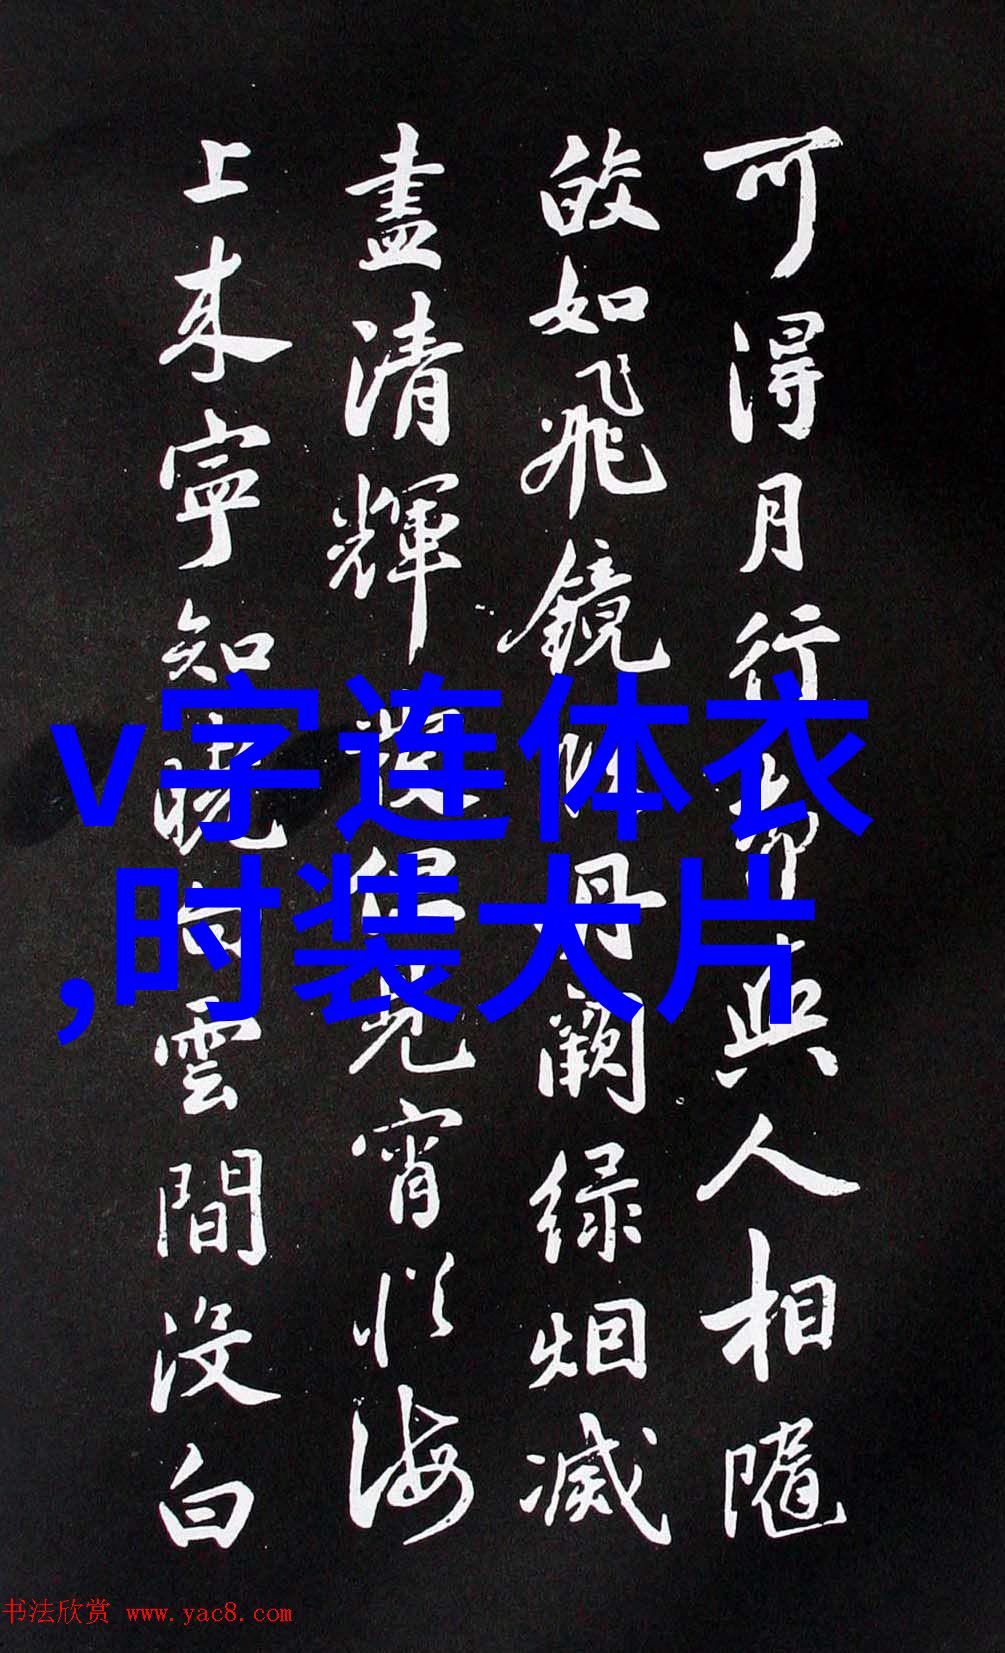 可得月行却與人相隨
皎如飛鏡臨丹闕緑烟滅
盡清輝發但見宵從海
上来寧知曉向雲間没白
v字连体衣
,时装大片
书法欣赏 www.yac8.com